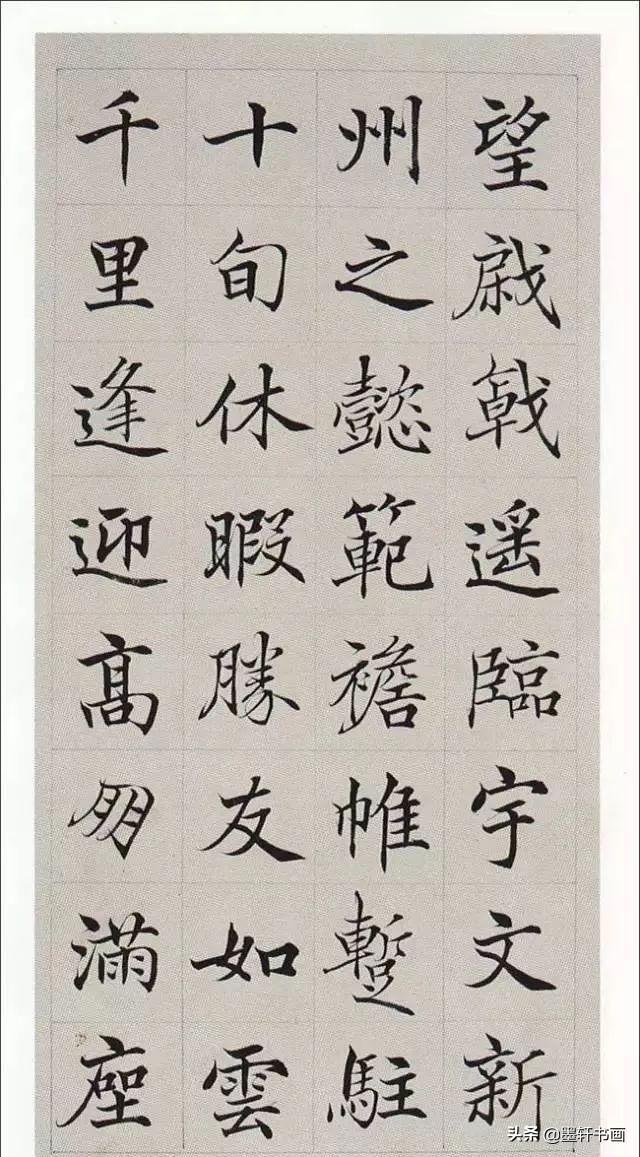 望戚戟遥臨宇文新
州之懿範襜帷蹔駐
十旬休暇勝友如雲
千里逢迎髙朋滿座
头条 @墨轩书画